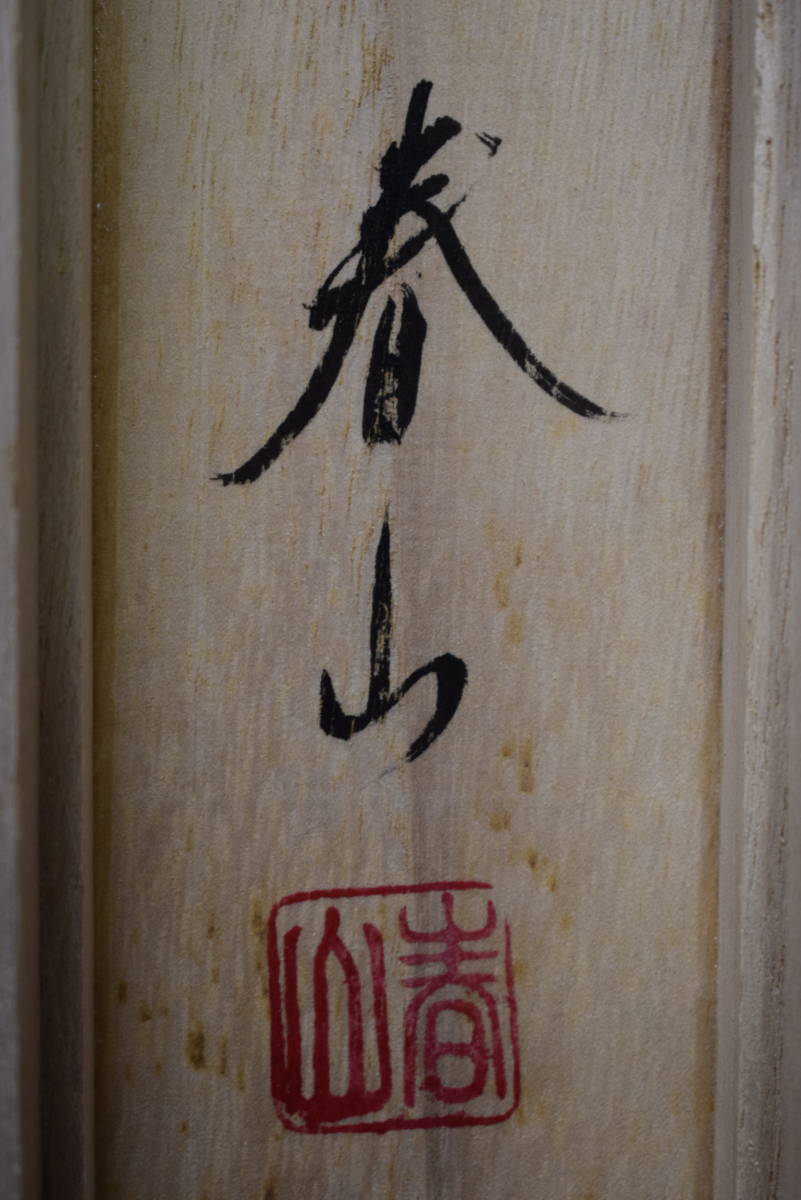 春山
春山